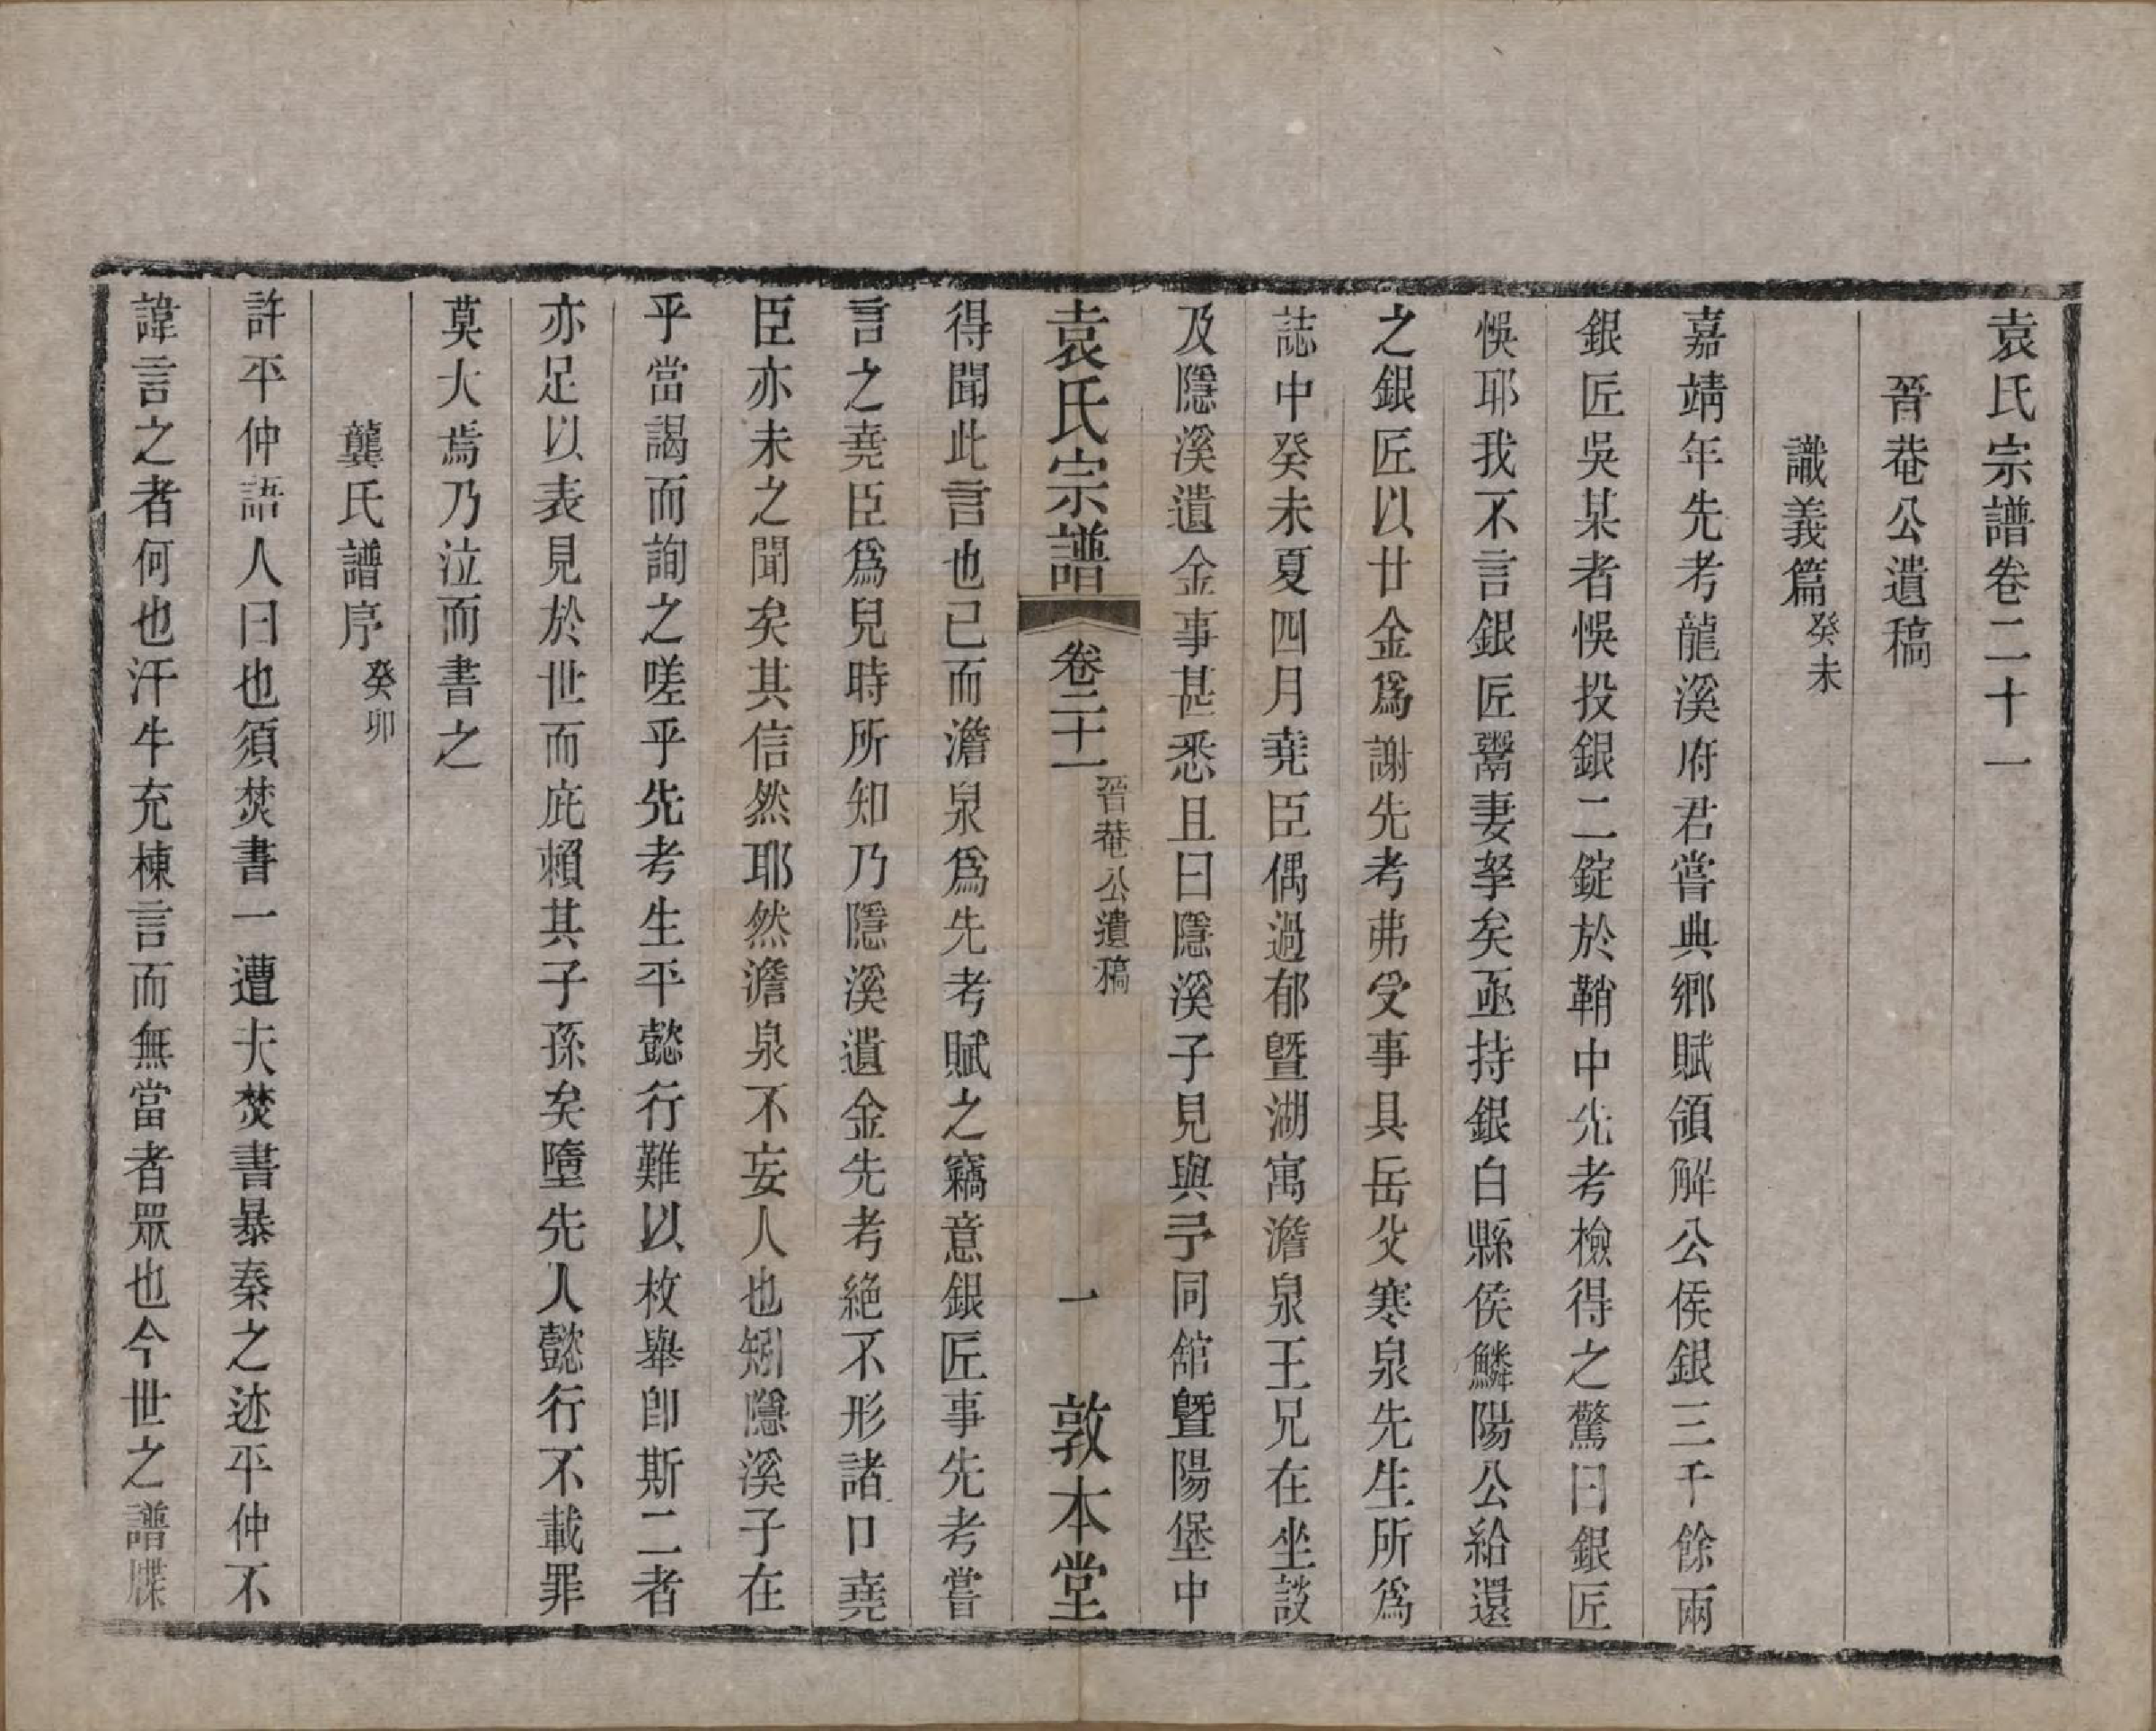 袁氏宗譜卷二十一
晉菴公遺稿
識義篇癸未
嘉靖年先考龍溪府君嘗典鄉賦領解公侯銀三千餘兩
銀匠吳某者悞投銀二錠於鞘中先考檢得之驚曰銀匠
悞耶我不言銀匠鬻妻孥矣亟持銀白縣侯鱗陽公給還
之銀匠以廿金爲謝先考弗受事具岳父寒泉先生所爲
誌中癸未夏四月堯臣偶過郁曁湖寓澹泉王兄在坐談
及隱溪遺金事甚悉且曰隱溪子見與予同舘曁陽堡中
袁氏宗譜 卷二十一 晉菴公遺稿 一 敦本堂
得聞此言也已而澹泉爲先考賦之竊意銀匠事先考嘗
言之堯臣爲兒時所知乃隱溪遺金先考絕不形諸口堯
臣亦未之聞矣其信然耶然澹泉不妄人也矧隱溪子在
乎當謁而詢之嗟乎先考生平懿行難以枚舉卽斯二者
亦足以表見於世而庇賴其子孫矣墮先人懿行不載罪
莫大焉乃泣而書之
龔氏譜序癸卯
許平仲語人曰也須焚書一遭夫焚書暴秦之迹平仲不
諱言之者何也汗牛充棟言而無當者眾也今世之譜牒